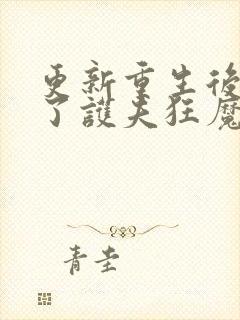 更新重生後
了護夫狂魔
青圭